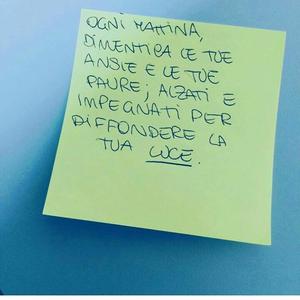 OGNI MATTINA,
DIMENTICA LE TUE
ANSIE E LE TUE
PAURE; ALZATI E
IMPEGNATI PER
DIFFONDERE LA
TUA LUCE.